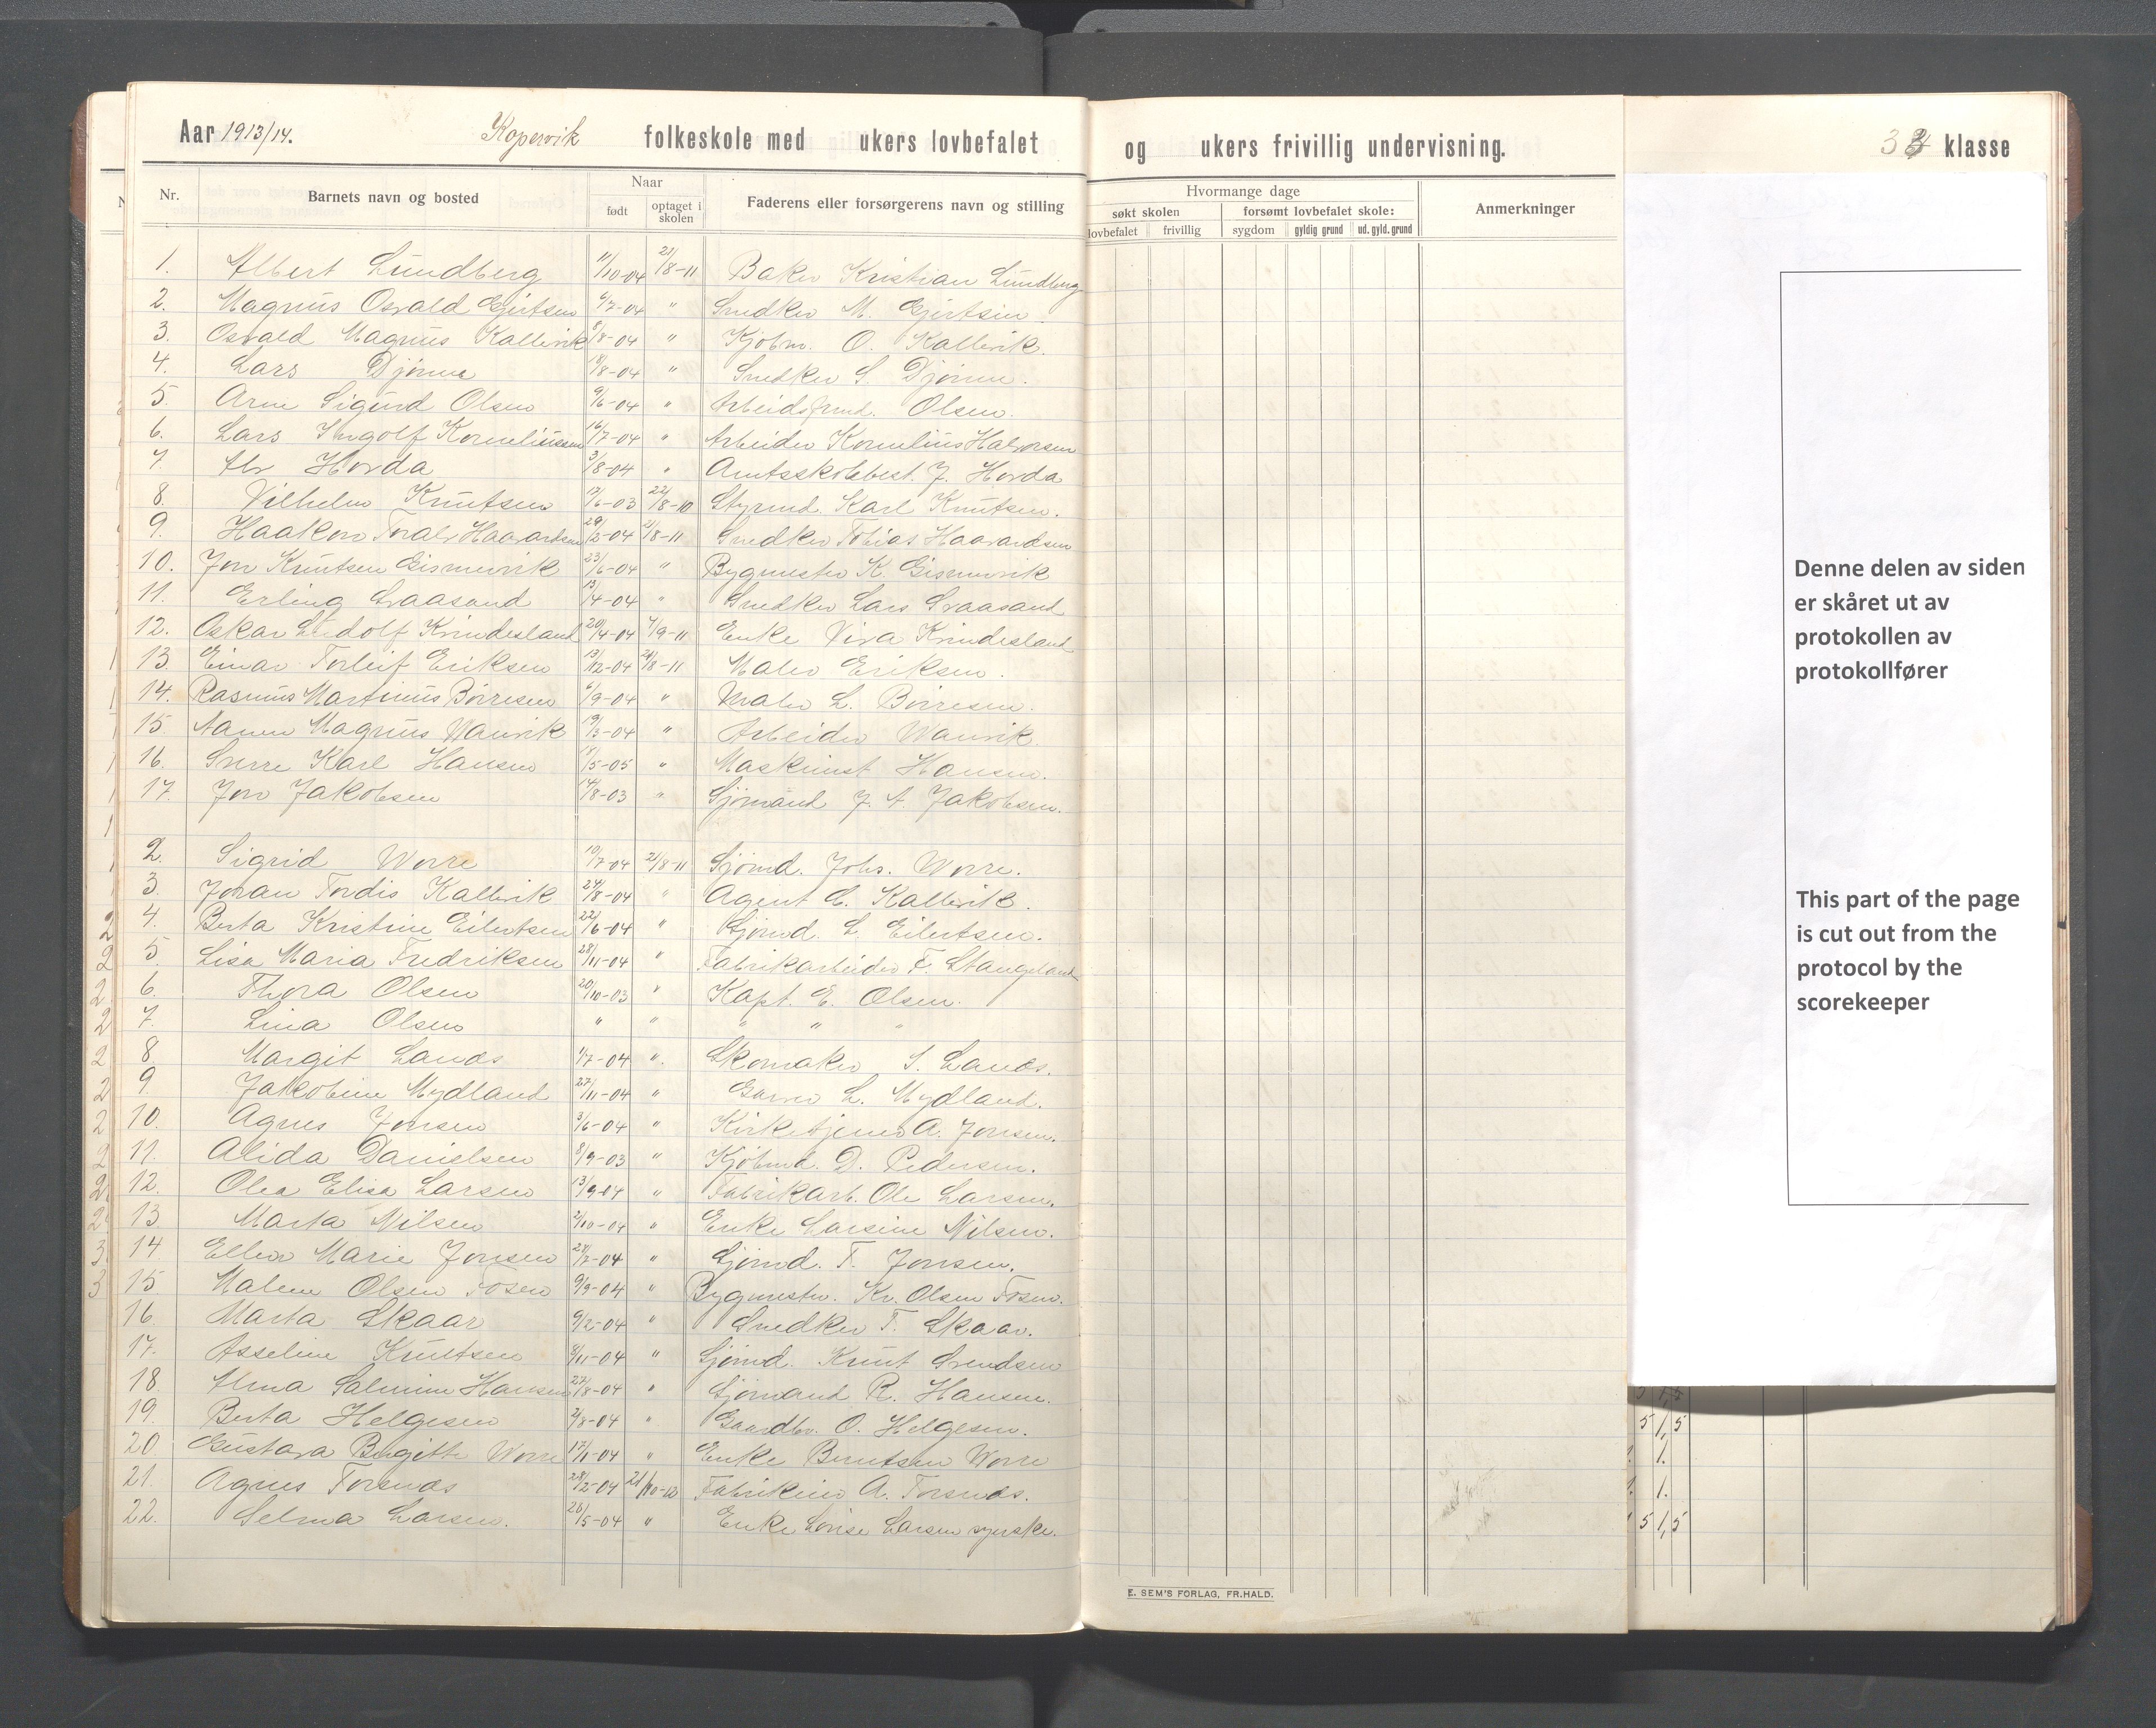 Aar 1913/14. Kopervik folkeskole med ukers lovbefalet og ukers frivillig undervisning. 3 klasse
Nr. Barnets navn og bosted Naar født optaget i skolen Faderens eller forsørgerens navn og stilling Hvormange dage søkt skolen lovbefalet frivillig forsømt lovbefalet skole: sygdom gyldig grund ud. gyld. grund Anmerkninger
1. Albert Lundberg 11/10-04 21/8-11 Baker Kristian Lundberg
2. Magnus Osvald Gjertsen 6/7-04 " Snedker M. Gjertsen.
3. Osvald Magnus Kallevik 8/8-04 " Kjøbm. O. Kallevik.
4. Lars Djønne /8-04 " Snedker S. Djønne.
5. Arne Sigurd Olsen 9/6-04 " Arbeidsfmd. Olsen.
6. Lars Ingolf Korneliussen 16/7-04 " Arbeider Kornelius Halvorsen
7. Alv Horda 3/8-04 " Amtsskolebest. J. Horda
8. Vilhelm Knutsen 17/6-03 22/8-10 Styrmd. Karl Knutsen.
9. Haakon Toralv Haavardsen 29/2-04 21/8-11 Snedker Tobias Haavardsen
10. Jon Knutsen Gismervik 23/6-04 " Bygmester K. Gismervik
11. Erling Sraasand 13/4-04 " Snedker Lars Sraasand
12. Oskar Ludolf Krindesland 20/4-04 4/9-11 Enke Vira Krindesland
13. Einar Torleif Eriksen 13/12-04 21/8-11 Maler Eriksen.
14. Rasmus Martinus Børresen 6/9-04 " Maler L. Børresen.
15. Aanen Magnus Wanvik 19/3-04 " Arbeider Wanvik
16. Sverre Karl Hansen /5-05 " Maskinist Hansen.
17. Jon Jakobsen 14/8-03 " Sjømand J. A. Jakobsen.
2. Sigrid Worre 10/7-04 21/8-11 Sjømd. Johs. Worre.
3. Joran Tordis Kallevik 24/8-04 " Agent C. Kallevik.
4. Berta Kristine Eilertsen 22/6-04 " Sjømd. L. Eilertsen.
5. Lisa Maria Fredriksen 28/11-04 " Fabrikarbeider F. Stangeland
6. Thora Olsen 20/10-03 " Kapt. E. Olsen.
7. Lina Olsen " " " " "
8. Margit Lanes 1/7-04 " Skomaker S. Lanes.
9. Jakobine Mydland 27/11-04 " Garver L. Mydland.
10. Agnes Jonsen 3/6-04 " Kirketjener A. Jonsen.
11. Alida Danielsen 8/9-03 " Kjøbmd. D. Pedersen.
12. Olea Elisa Larsen 13/9-04 " Fabrikarb. Ole Larsen.
13. Marta Nilsen 2/10-04 " Enke Larsine Nilsen.
14. Ellen Marie Jonsen 21/2-04 " Sjømd. T. Jonsen.
15. Malene Olsen Fosen 9/3-04 " Bygmester. Kr. Olsen Fosen.
16. Marta Skaar 9/2-04 " Snedker T. Skaar.
17. Asseline Knutsen 8/11-04 " Sjømd. Knut Svendsen
18. Alma Salmine Hansen 27/8-04 " Sjømand R. Hansen.
19. Berta Helgesen 2/8-04 " Gaardbr. O. Helgesen.
20. Gustava Birgitte Worre 17/1-04 " Enke Berntsen Worre
21. Agnes Torsnes 28/2-04 21/10-12 Fabrikeier A. Torsnes.
22. Selma Larsen. 26/5-04 " Enke Lovise Larsen syerske.
E. SEM'S FORLAG, FR.HALD.
Denne delen av siden
er skåret ut av
protokollen av
protokollfører
This part of the page
is cut out from the
protocol by the
scorekeeper
5 1,5
1.
1.
5 1,5